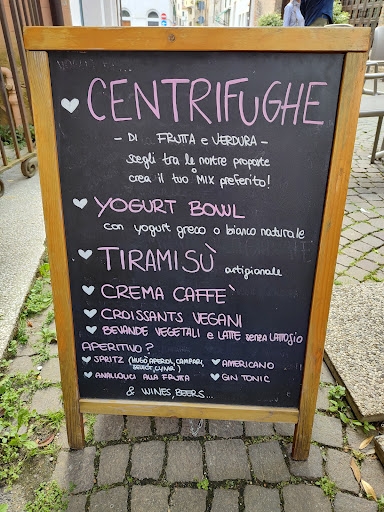 CENTRIFUGHE
- DI FRUTTA e VERDURA -
scegli tra le nostre proposte
o
crea il tuo MIX preferito!
YOGURT BOWL
con yogurt greco o bianco naturale
TIRAMISÙ artigionale
CREMA CAFFE'
CROISSANTS VEGANI
BEVANDE VEGETALI e LATTE SENZA LATTOSIO
APERITIVO?
SPRITZ (HUGO, APEROL, CAMPARI, SELECT, CYNAR)
AMERICANO
ANALCOLICI ALLA FRUTTA
GIN TONIC
& WINES, BEERS...